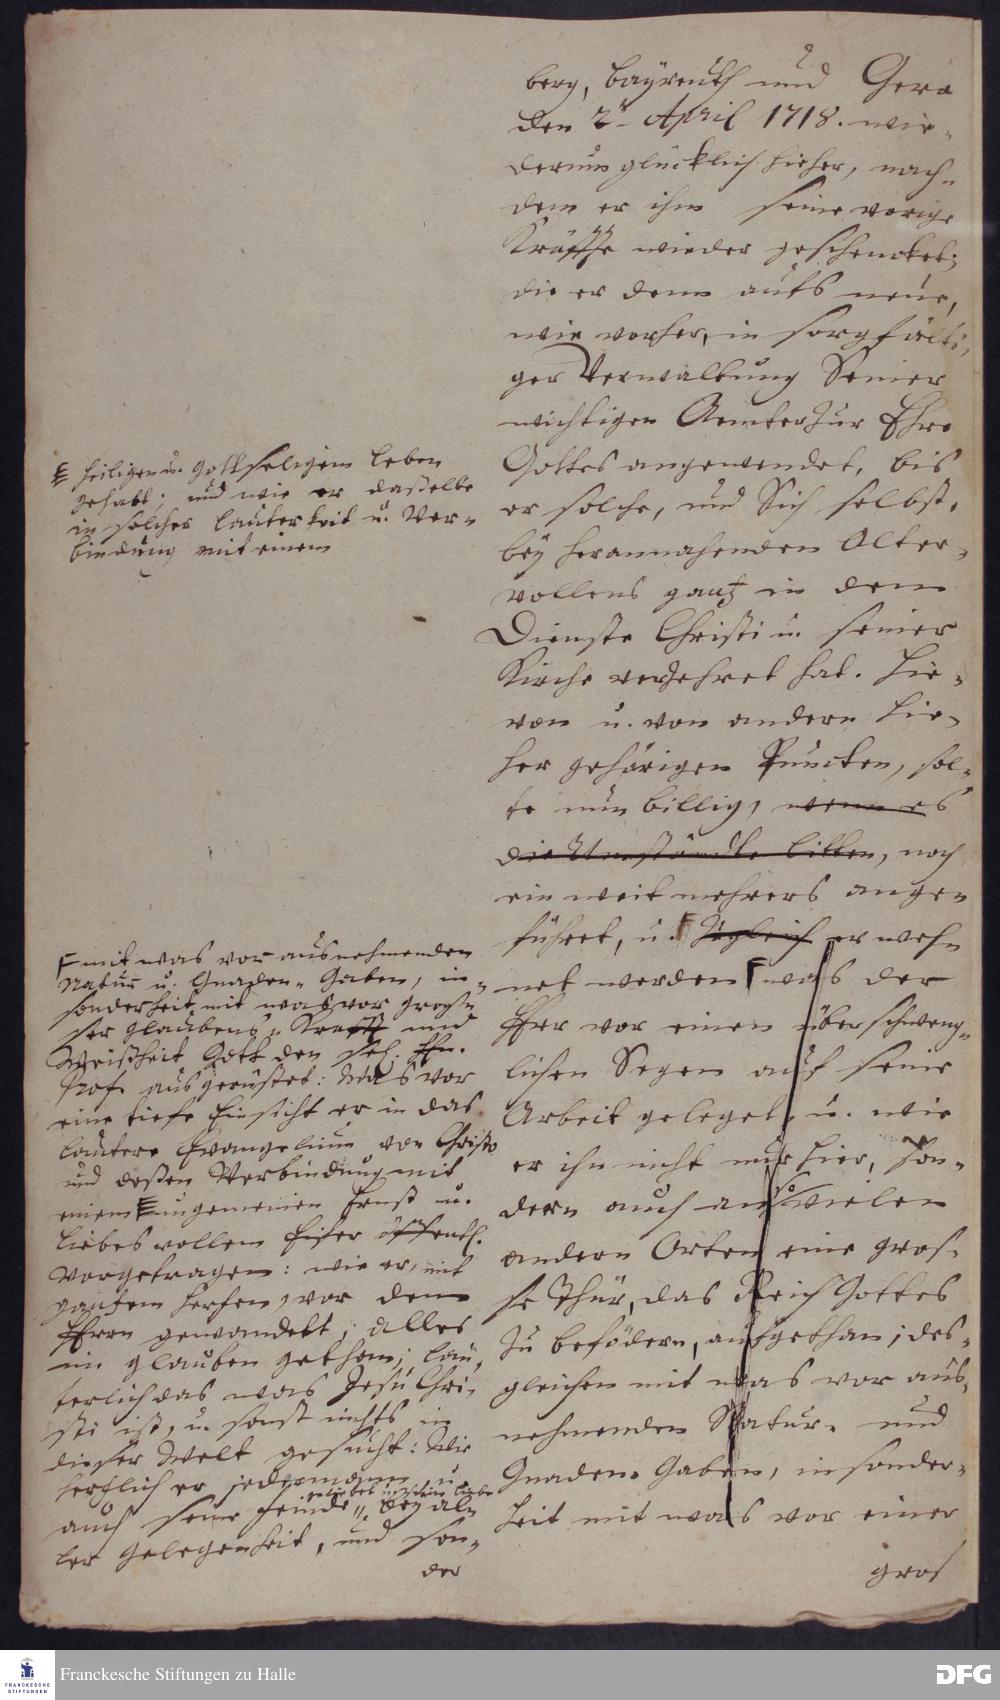 berg, Bayreuth und Gera
den 2t April 1718. wie-
derum glücklich hieher, nach-
dem er ihm seine vorige
Kräffte wieder geschencket;
die er denn aufs neue,
wie vorher, in sorgfälti-
ger Verwaltung Seiner
wichtigen Aemter zur Ehre
Gottes angewendet, bis
er solche, und Sich selbst,
bey herannahenden Alter,
vollens gantz in dem
Dienste Christi u. seiner
Kirche verzehret hat. Hie-
von u. von andern hie-
her gehörigen Puncten, sol-
te nun billig, wenn es
die Umstände litten, noch
ein weit mehrers ange-
führet, u. F zugleich erweh-
net werden F was der
Herr vor einen überschweng-
lichen Segen auf seine
Arbeit geleget, u. wie
er ihn nicht nur hier, son-
dern auch an so vielen
andern Orten eine gros-
se Thür, das Reich Gottes
zu befödern, aufgethan; des-
gleichen mit was vor aus-
nehmenden Natur- und
Gnaden-Gaben, insonder-
heit mit was vor einer
gros
heiligen u. gottseligem Leben
gehabt; und wie er daßelbe
in solcher lauterkeit u. Ver-
bindung mit einem
F mit was vor ausnehmenden
Natur u. Gnaden-Gaben, in-
sonderheit mit was vor gros-
ser Glaubens-Krafft und
Weißheit Gott den sel. Hn.
Prof. ausgerüstet: Was vor
eine tiefe Einsicht er in das
lautere Evangelium von Christo
und deßen Verbindung mit
einem ungemeinen Ernst u.
Liebesvollem Eifer öffentl.
vorgetragen: wie er, mit
gantzem Hertzen, vor dem
Herrn gewandelt; alles
im Glauben gethan; lau-
terlich das was Jesu Chri-
sti ist, u. sonst nichts in
dieser Welt gesucht: Wie
hertzlich er jedermann u.
auch seine Feinde geliebet u. seine Liebe bey al-
ler Gelegenheit, und son-
der
Franckesche Stiftungen zu Halle
FRANCKESCHE
STIFTUNGEN
DFG